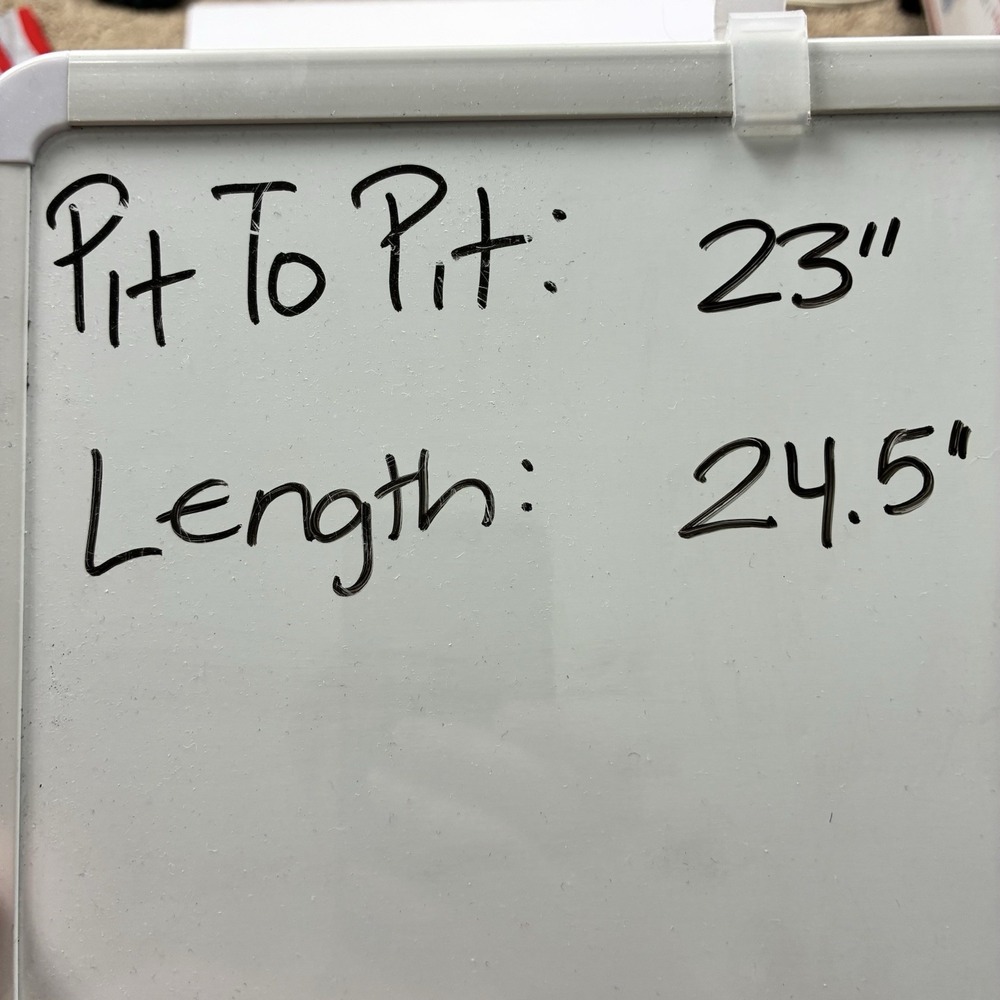 Pit To Pit: 23"
Length: 24.5"